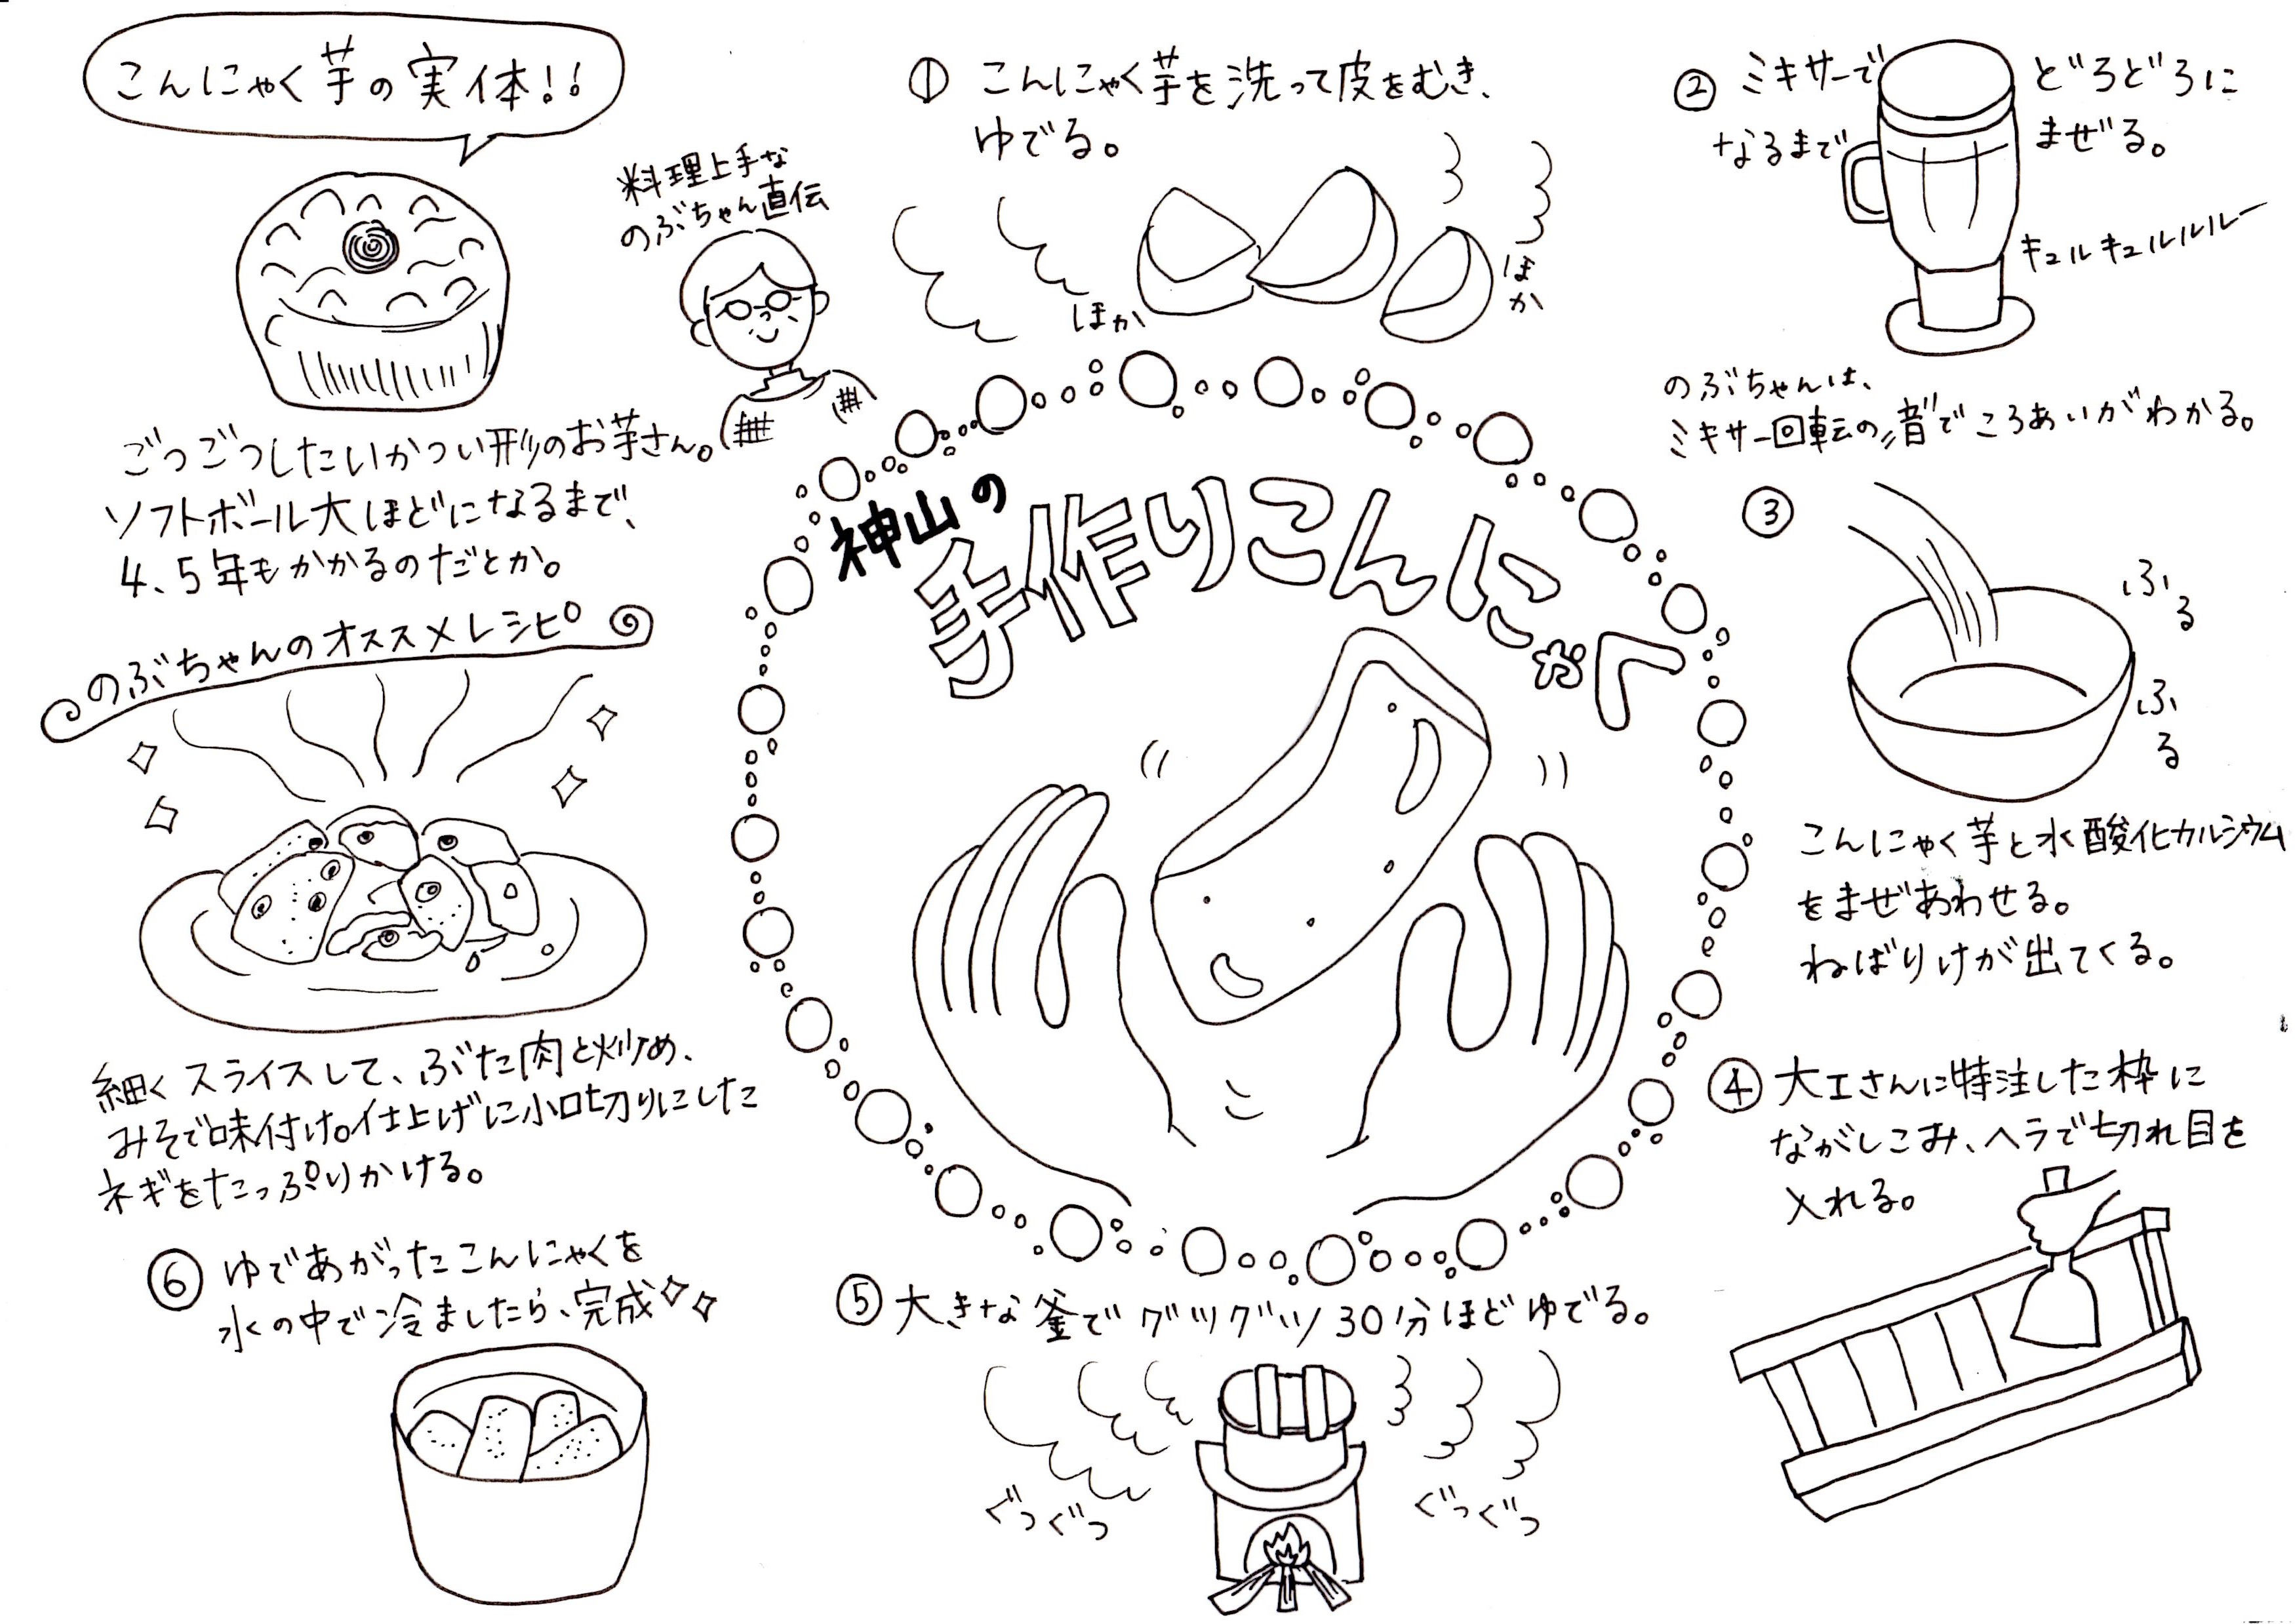 こんにゃく芋の実体!!
料理上手な
のぶちゃん直伝
ごつごつしたいかつい形のお芋さん。
ソフトボール大ほどになるまで、
4、5年もかかるのだとか。
神山の
手作りこんにゃく
① こんにゃく芋を洗って皮をむき、
ゆでる。
ほか
ほか
② ミキサーで どろどろに
なるまで まぜる。
キュルキュルルルー
のぶちゃんは、
ミキサー回転の音でころあいがわかる。
③
ふる
ふる
こんにゃく芋と水酸化カルシウム
をまぜあわせる。
ねばりけが出てくる。
④ 大工さんに特注した枠に
ながしこみ、ヘラで切れ目を
入れる。
⑤ 大きな釜でグツグツ30分ほどゆでる。
ぐつぐつ
ぐつぐつ
⑥ ゆであがったこんにゃくを
水の中で冷ましたら、完成
のぶちゃんのオススメレシピ
細くスライスして、ぶた肉と炒め、
みそで味付け。仕上げに小口切りにした
ネギをたっぷりかける。